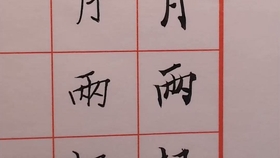 月 月
两 两